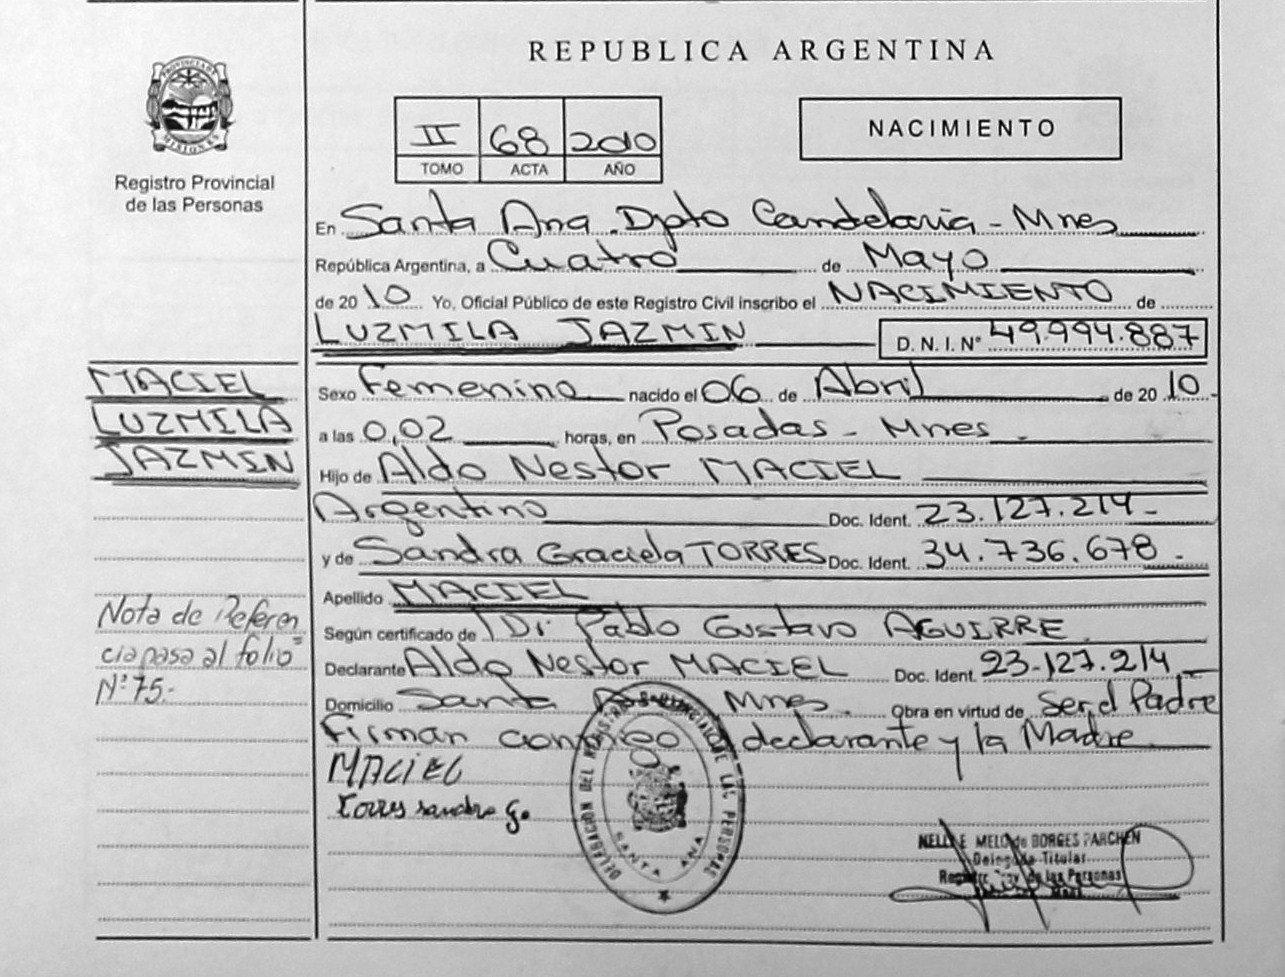 REPUBLICA ARGENTINA
PROVINCIA DE
MISIONES
Registro Provincial
de las Personas
II 68 2010
TOMO ACTA AÑO
NACIMIENTO
En Santa Ana Dpto Candelaria - Mnes
República Argentina, a Cuatro de Mayo
de 2010 Yo, Oficial Público de este Registro Civil inscribo el NACIMIENTO de
LUZMILA JAZMIN D. N. I. Nº 49.994.887
MACIEL
LUZMILA
JAZMIN
Sexo Femenino nacido el 06 de Abril de 2010
a las 0,02 horas, en Posadas - Mnes.
Hijo de Aldo Nestor MACIEL
Argentino Doc. Ident. 23.127.214-
y de Sandra Graciela TORRES Doc. Ident. 34.736.678-
Apellido MACIEL
Según certificado de Dr. Pablo Gustavo AGUIRRE
Declarante Aldo Nestor MACIEL Doc. Ident. 23.127.214
Domicilio Santa Mnes. Obra en virtud de Ser el Padre
Firman declarante y la Madre.
Nota de Referen
cia pasa al folio
Nº 75.-
MACIEL
Torres sandra G.
DELEGACION DEL REGISTRO PROVINCIAL DE LAS PERSONAS
SANTA ANA
NELLY E. MELO de BORGES PARCHEN
Delegada Titular
Registro Prov. de las Personas